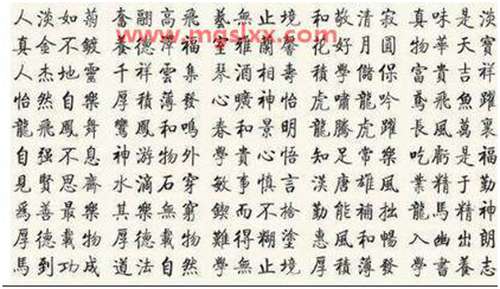 人淡如菊 奮翮高飛 藝無止境 和敬清寂 真味是淡
www.mgslxx.com
真金不鍍 養德 福 花好月圓 物華天寶
人杰地靈 千祥雲集 琴 相 積學儲保 富貴吉祥
怡然自樂 厚積薄發 心曠神怡 虎嘯龍吟 鳶飛魚躍
龍飛鳳舞 鸞鳳和鳴 春和景明 龍騰虎躍 長風萬裏
自强不息 神游物外 和貴心悟 知足常樂 吃虧是福
見賢思齋 水滴石穿 敏事慎言 漢唐雄風 業精于勤
爲善最樂 其樂無窮 鍥而不捨 勤能補拙 龍馬精神
厚德載物 厚德載物 難得糊塗 惠風和暢 入幽出朗
馬到功成 道法自然 學無止境 厚積薄發 學書養志